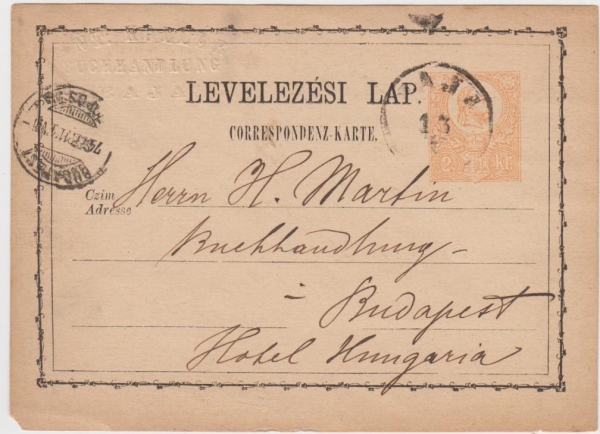 BUCHHANDLUNG
BAJA
LEVELEZÉSI LAP.
CORRESPONDENZ-KARTE.
BAJA
13
2 kr
BUDAPEST
74
Czim
Adresse
Herrn H. Martin
Buchhandlung
Budapest
Hotel Hungaria